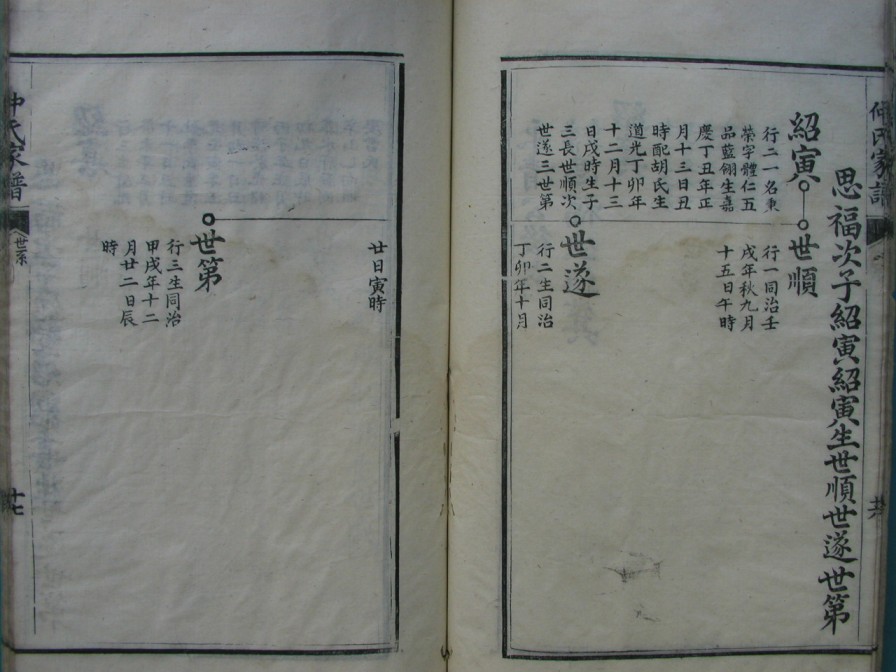 仲氏家譜
思福次子紹寅紹寅生世順世遂世第
紹寅
行二一名東
榮字體仁五
品藍翎生嘉
慶丁丑年正
月十三日丑
時配胡氏生
道光丁卯年
十二月十三
日戌時生子
三長世順次
世遂三世第
世順
行一同治壬
戌年秋九月
十五日午時
世遂
行二生同治
丁卯年十月
廿日寅時
世第
行三生同治
甲戌年十二
月廿二日辰
時
仲氏家譜
世系
廿七